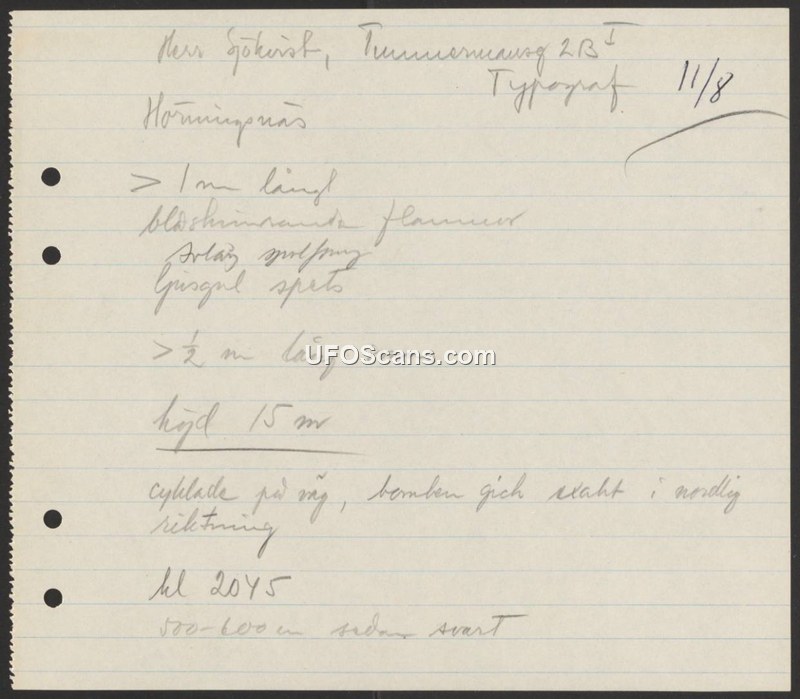 Herr Sjökvist, Timmermansg 2B I
Typograf 11/8
Hörningsnäs
> 1 m långt
blåskimrande flammor
ljusgul spets
> ½ m lång
UFOScans.com
höjd 15 m
cyklade på väg, bomben gick exakt i nordlig
riktning
kl 2045
500-600 m sedan svart